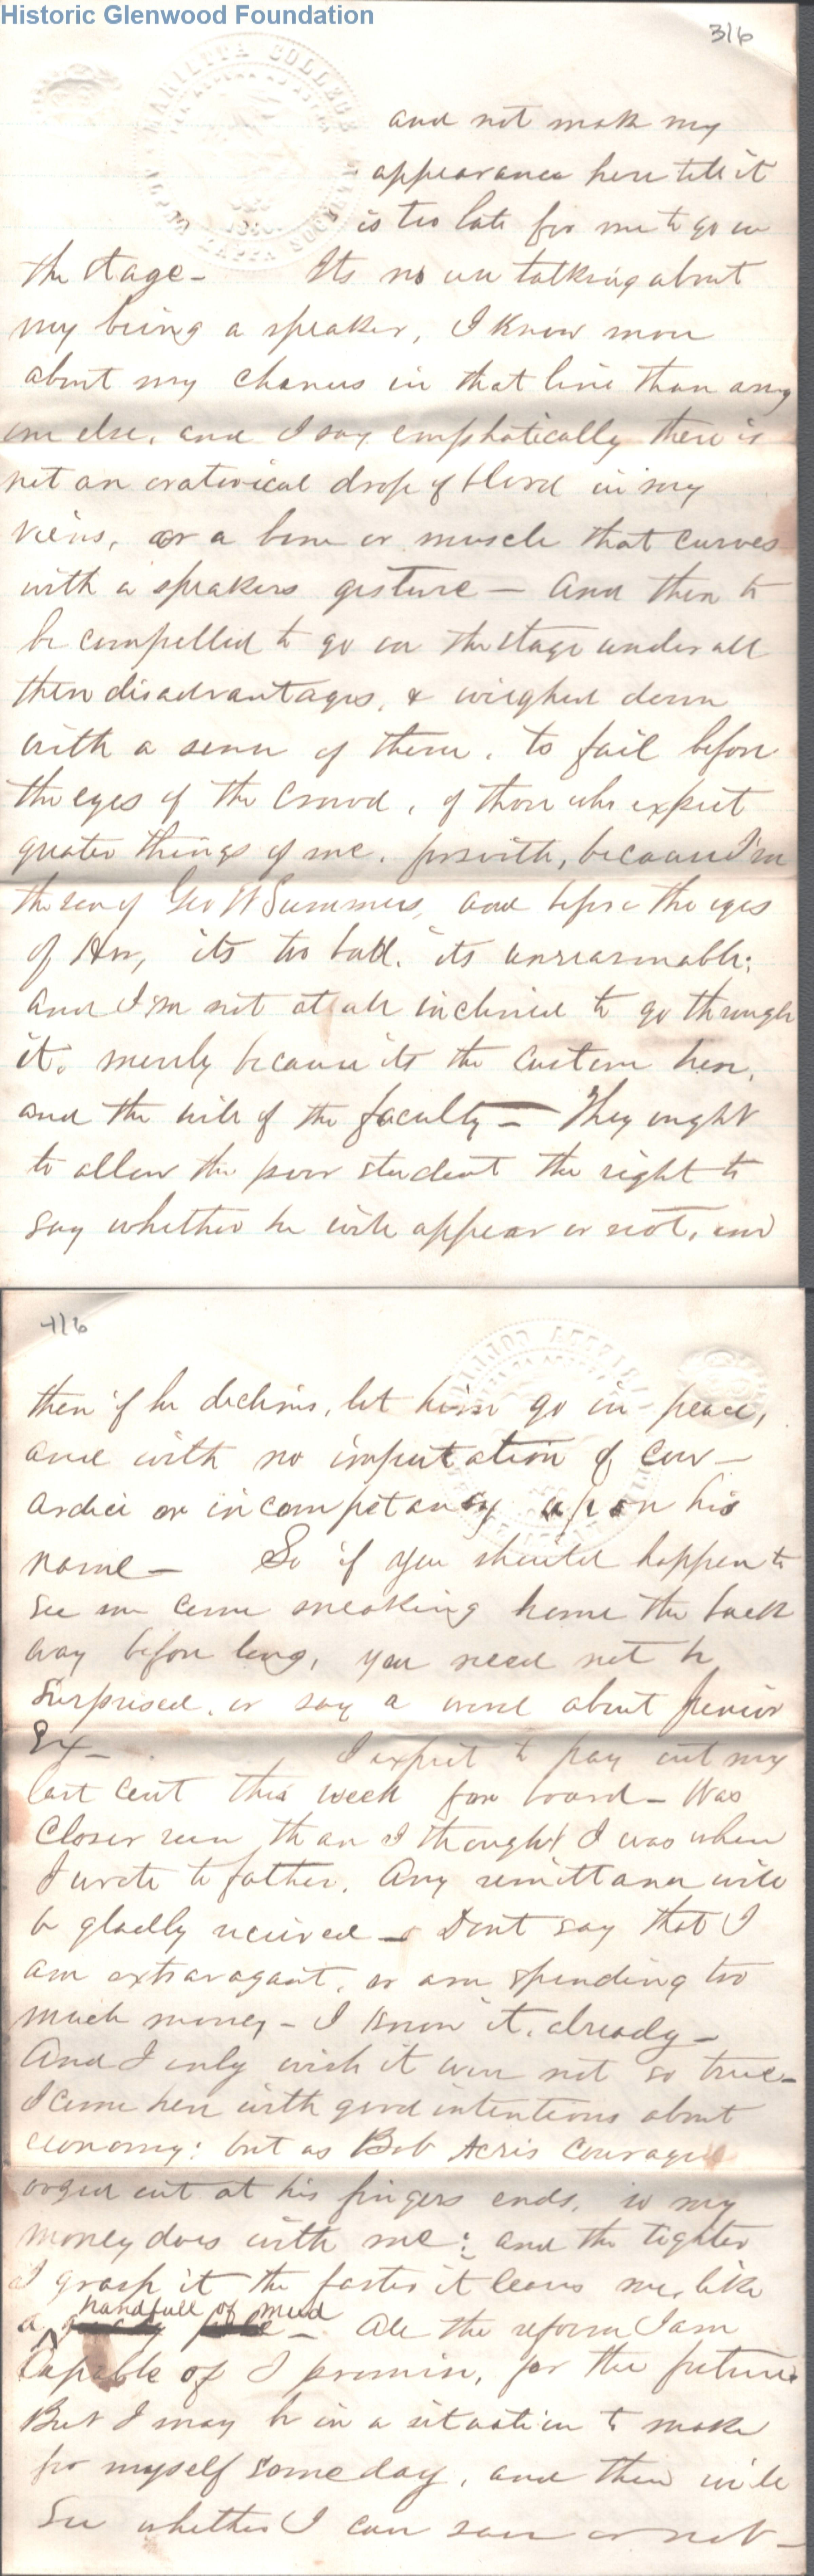 Historic Glenwood Foundation
3/6
MARIETTA COLLEGE
and not make my
appearance here till it
is too late for me to go on
the stage - Its no use talking about
my being a speaker, I know more
about my chances in that line than any
one else, and I say emphatically there is
not an oratorical drop of blood in my
viens, or a bone or muscle that curves
with a speakers gesture - And then to
be compelled to go on the stage under all
these disadvantages, & wieghed down
with a sense of them, to fail before
the eyes of the crowd, of those who expect
greater things of me, forsooth, because I'm
the son of Geo W Summers, and before the eyes
of Her, its too bad, its unreasonable;
and I'm not at all inclined to go through
it, merely because its the custom here,
and the will of the faculty - They ought
to allow the poor student the right to
say whether he will appear or not, and
4/6
then if he declines, let him go in peace,
and with no imputation of cow-
ardice or incompetancy upon his
name - So if you should happen to
see me come sneaking home the back
way before long, you need not be
surprised, or say a word about Junior
Ex - I expect to pay out my
last cent this week for board - Was
closer run than I thought I was when
I wrote to father. Any remittance will
be gladly recieved - Dont say that I
am extravagant, or am spending too
much money - I know it, already -
And I only wish it were not so true -
I come here with good intentions about
economy: but as Bob Acris courage
oozed out at his fingers ends, so my
money does with me: and the tighter
I grasp it the faster it leaves me, like
a handfull of mud - All the reform I am
capable of I promise, for the future.
But I may be in a situation to make
for myself some day, and then will
see whether I can save or not -